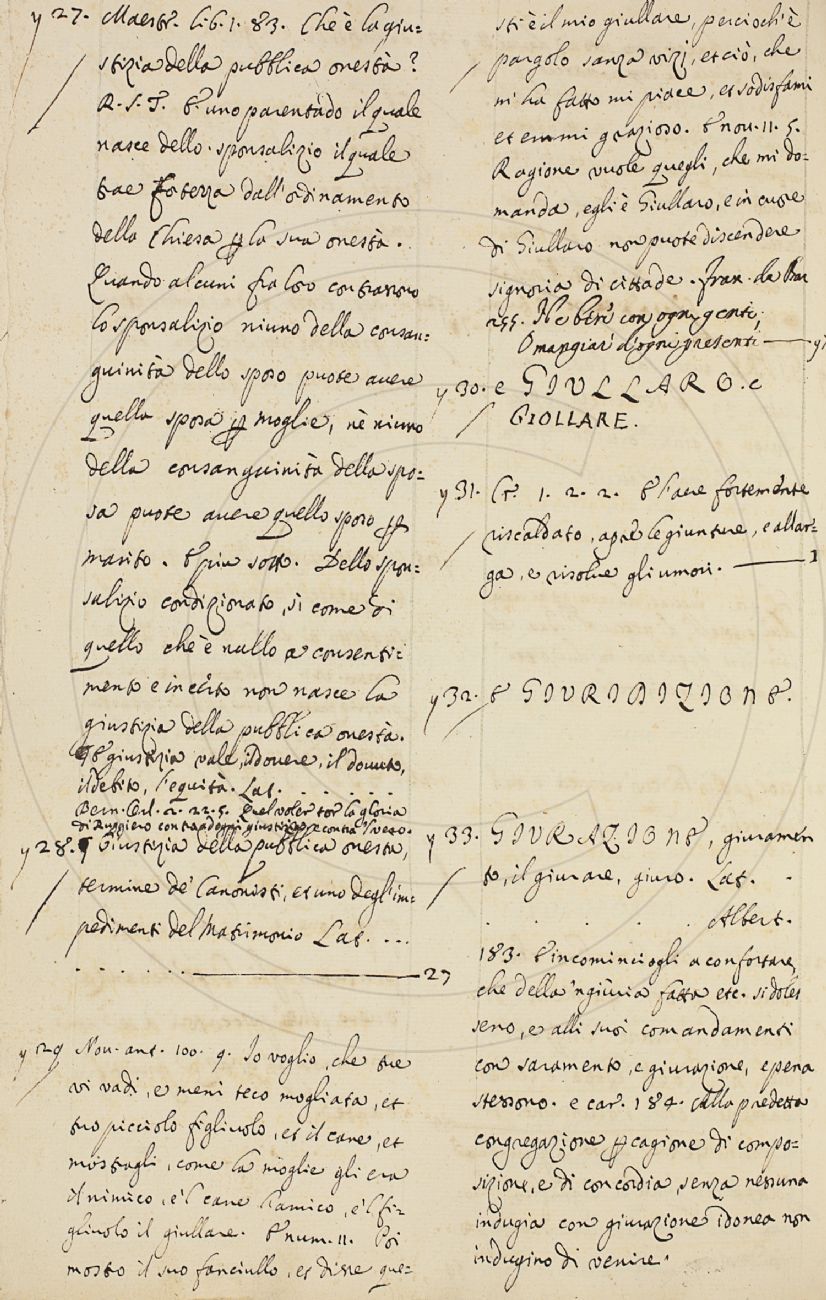 y 27. Maestr. lib. 1. 83. Che è la giu=
stizia della pubblica onestà?
R. S. T. È uno parentado il quale
nasce dello sponsalizio il quale
trae forerza dall'ordinamento
della Chiesa p la sua onestà.
Quando alcuni fra loro contraggono
lo sponsalizio niuno della consan=
guinità dello sposo puote avere
quella sposa p moglie, nè niuno
della consanguinità della spo=
sa puote avere quello sposo p
marito. E più sotto. Dello spon=
salizio condizionato, sì come di
quello che è nullo p consenti=
mento e incerto non nasce la
giustizia della pubblica onestà.
E giustizia vale, il dovere, il dovuto,
il debito, l'equità. Lat. . . . . . .
Bern. Orl. 2. 22. 5. Quel voler tor la gloria
di Ruggiero contra ogni giustizia e contra 'l vero.
y 28. Giustizia della pubblica onestà,
termine de' Canonisti, et uno degl'im=
pedimenti del Matrimonio Lat. . . .
. . . . . . 27
y 29 Nov. ant. 100. 9. Io voglio, che tue
vi vadi, e meni teco mogliata, et
tuo picciolo figliuolo, et il cane, et
mostragli, come la moglie gli era
il nimico, e'l cane l'amico, e'l fi=
gliuolo il giullare. E num. 11. Poi
mostro il suo fanciullo, et disse que=
sti è il mio giullare, perciochè è
pargolo sanza vizj, et ciò, che
mi ha fatto mi piace, et sodisfami
et emmi grazioso. E nov. 11. 5.
Ragione vuole quegli, che mi do=
manda, egli è Giullaro, e in cuore
di Giullaro non puote discendere
signoria di cittade. Fran. da Bar
255. Ne beri con ogni genti,
O mangiar d'ogni presenti
y 30. e GIULLARO. e
GIOLLARE.
y 31. Cr. 1. 2. 2. E l'aere fortemente
riscaldato, apre le giunture, e allar=
ga, e risolve gli umori.
y 32. E GIURIDIZIONE.
y 33. GIURAZIONE, giuramen
to, il giurare, giuro. Lat. .
. . . . . Albert.
183. E incominciogli a confortare,
che della 'ngiuria fatta etc. si doles
seno, e alli suoi comandamenti
con saramento, e giurazione, e pena
stessono. e car. 184. Alla predetta
congregazione p cagione di compo=
sizione, e di concordia, senza nessuna
indugia con giurazione idonea non
indugino di venire.